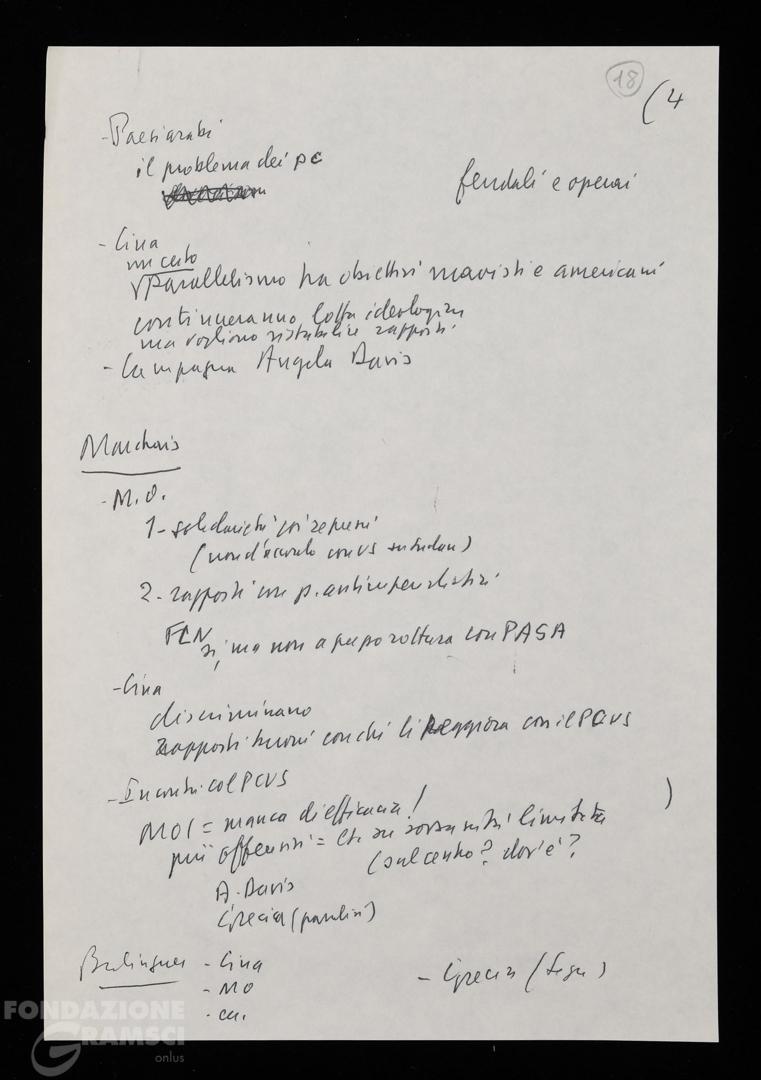 18
(4
- Paesi arabi
il problema dei pc
feudali e operai
- Cina
un certo
√ Parallelismo tra obiettivi maoisti e americani
continueranno lotta ideologica
ma vogliono ristabilire rapporti
- Campagna Angela Davis
Marchais
- M.O.
1 - solidarietà coi repressi
(non d'accordo con US su Sudan)
2 - rapporti con p. antimperialisti
FLN
sì, ma non a prezzo rottura con PAGS
- Cina
discriminano
rapporti buoni con chi li peggiora con il PCUS
- Incontri col PCUS
MOI = manca di efficacia!
più offensivi =
limitata
(sul centro? dov'è?
)
A. Davis
Grecia (
Berlinguer - Cina
- MO
- Grecia (
FONDAZIONE
GRAMSCI
onlus